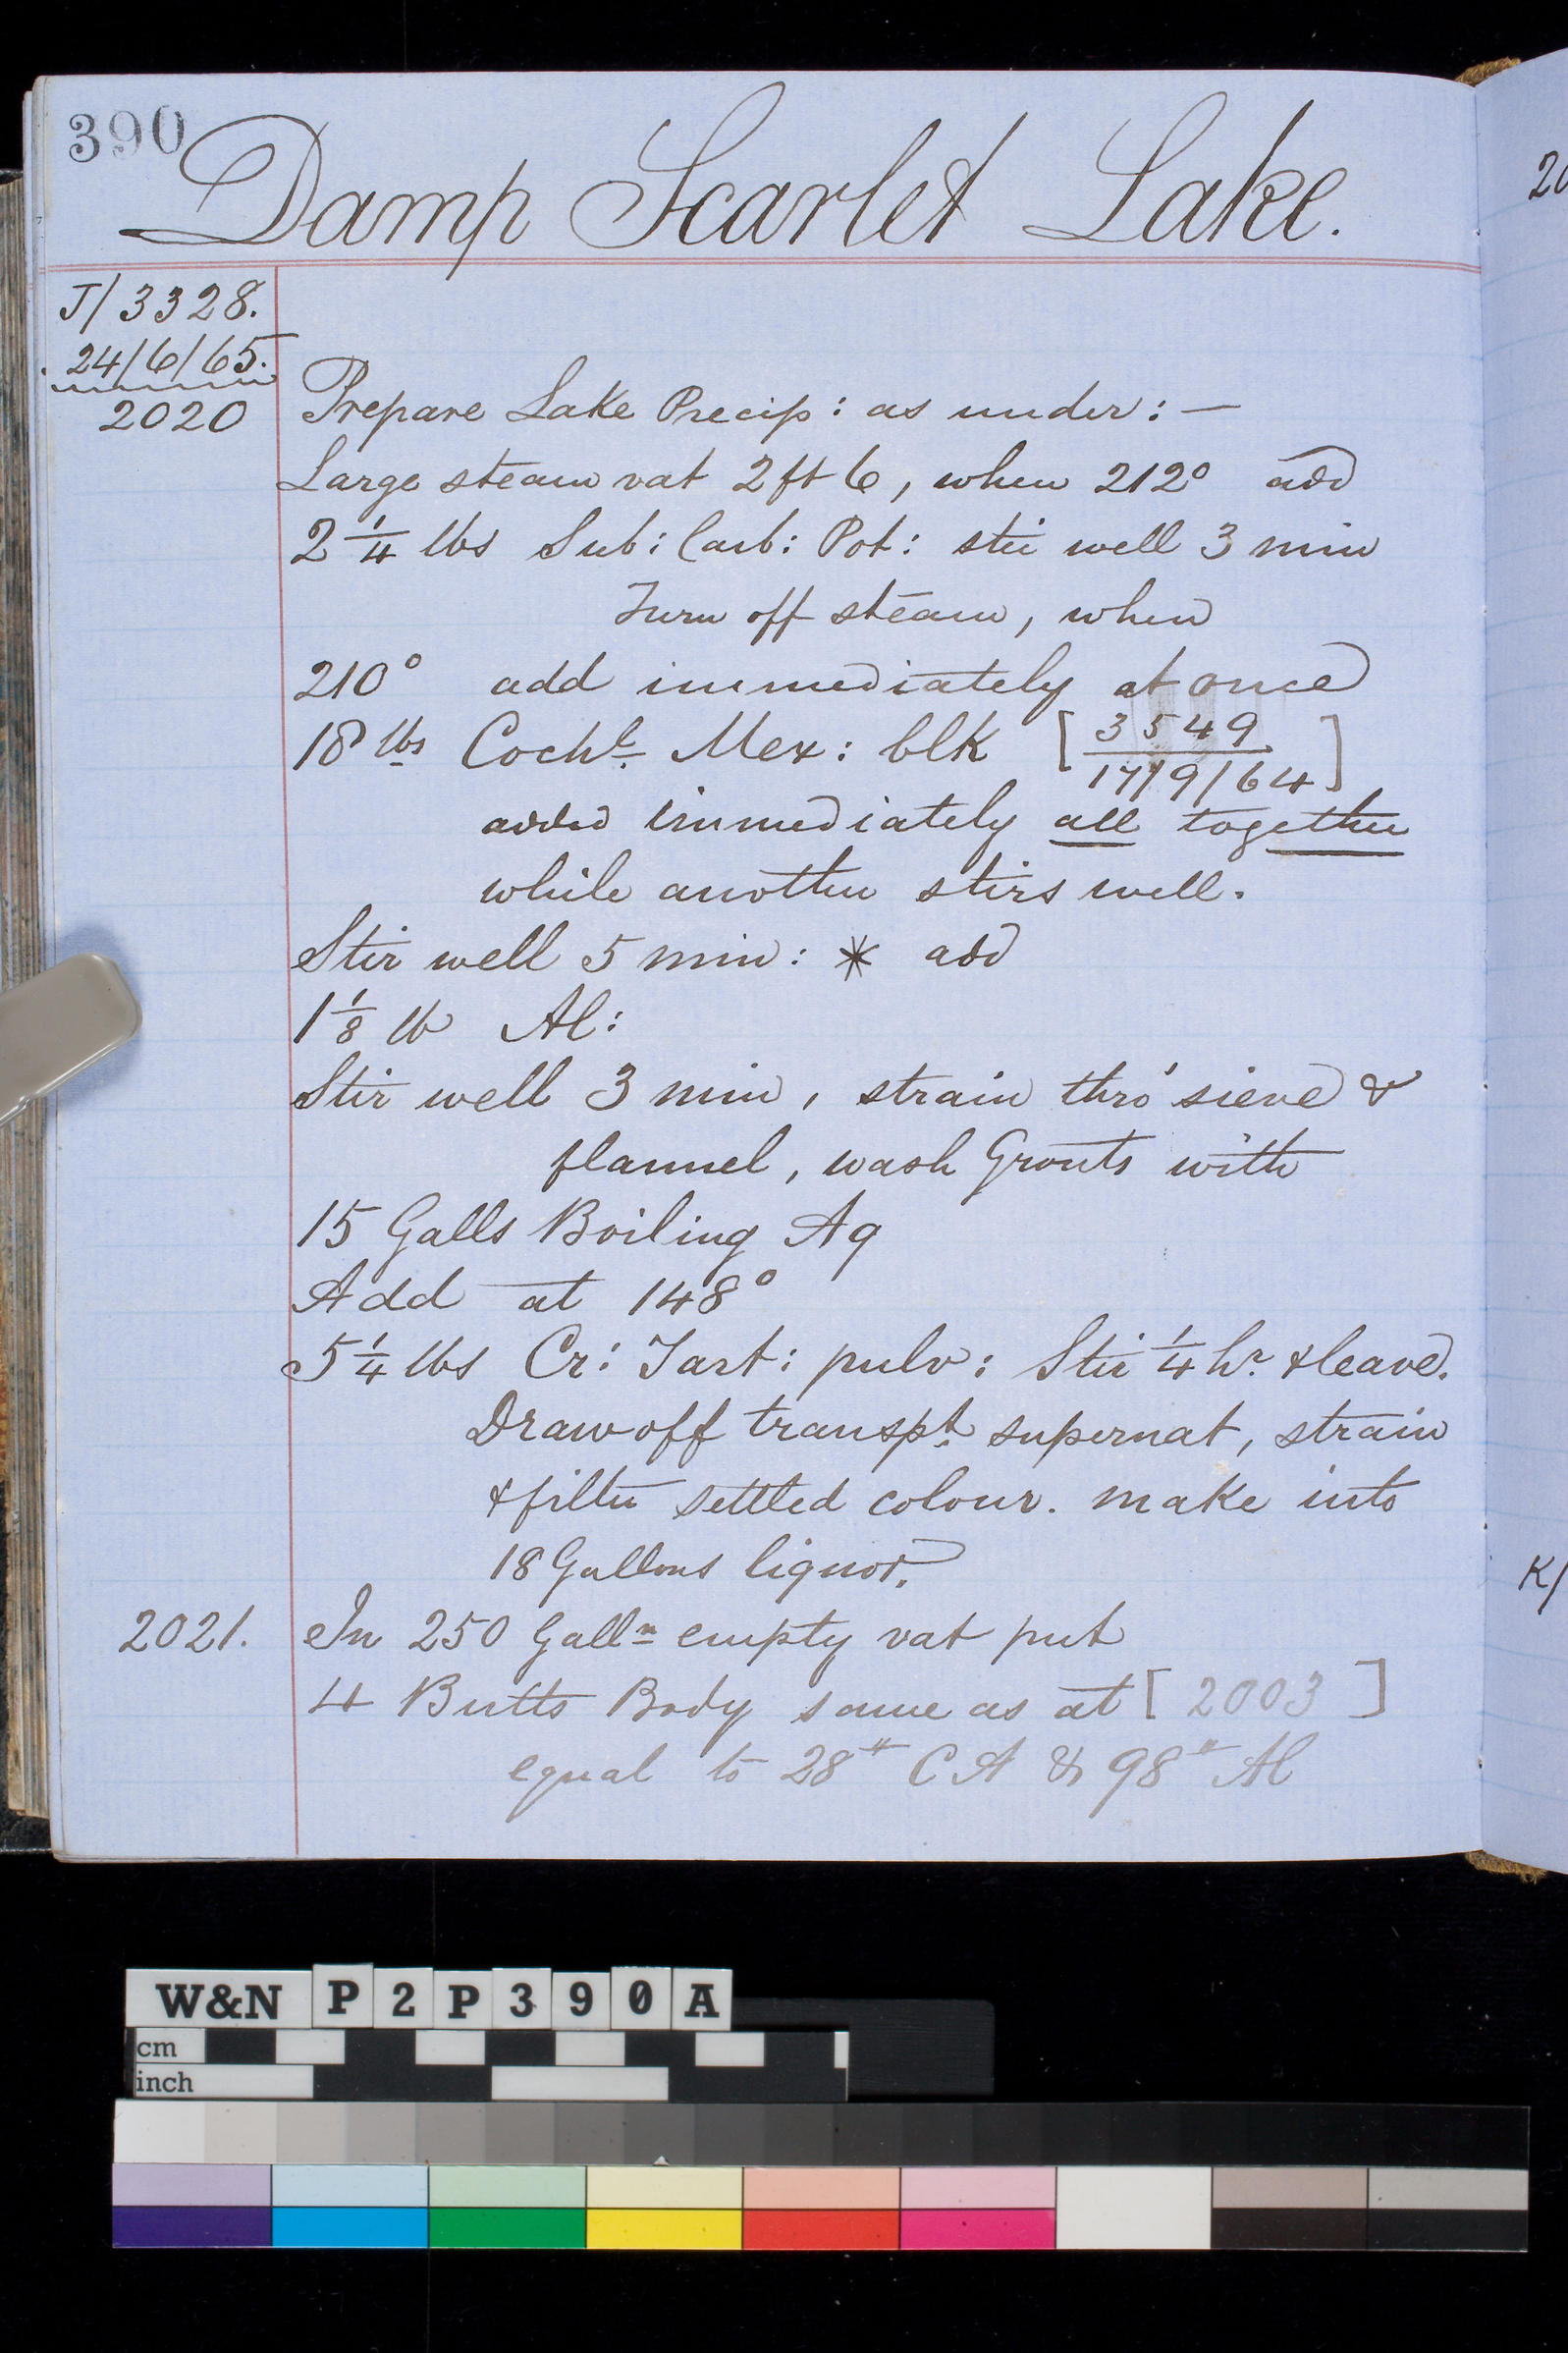 390
Damp Scarlet Lake.
J/3328.
24/6/65.
2020 Prepare Lake Precip: as under: —
Large steam vat 2 ft 6, when 212° add
2 1/4 lbs Sub: Carb: Pot: stir well 3 min
Turn off steam, when
210° add immediately at once
18 lbs Cochl. Mex: blk [3549
17/9/64]
added immediately all together
while another stirs well.
Stir well 5 min: * add
1 1/8 lb Al:
Stir well 3 min, strain thro' sieve &
flannel, wash Grouts with
15 Galls Boiling Aq
Add at 148°
5 1/4 lbs Cr: Tart: pulv: Stir 1/4 hr. & leave.
Draw off transpt. supernat, strain
& filter settled colour. make into
18 Gallons liquor.
2021. In 250 Galln empty vat put
4 Butts Body same as at [2003]
equal to 28# CA & 98# Al
20
K/
W&N P2P390A
cm
inch